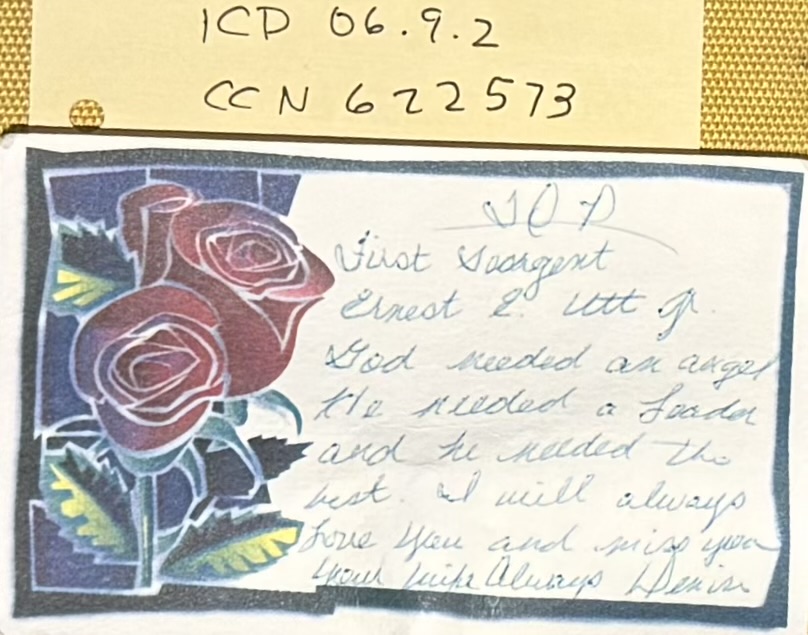 ICD 06.9.2
CCN 622573
TOP
First Seargent
Ernest E. Utt Jr.
God needed an angel
He needed a Leader
and he needed the
best. I will always
Love You and miss you
Your wife Always Denise